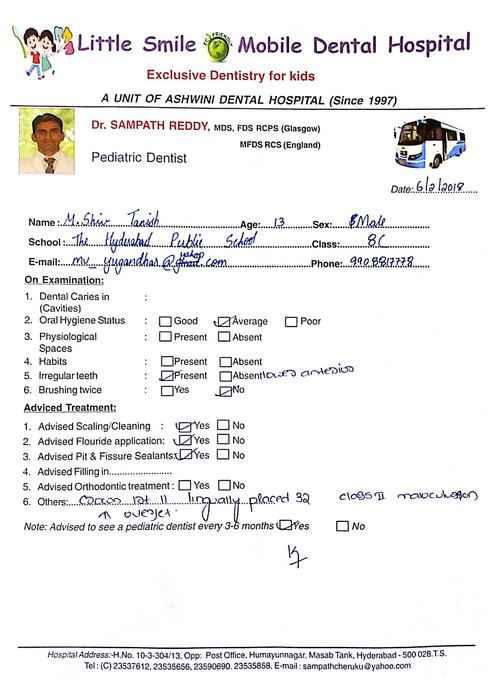 Little Smile Mobile Dental Hospital
Exclusive Dentistry for kids
A UNIT OF ASHWINI DENTAL HOSPITAL (Since 1997)
Dr. SAMPATH REDDY, MDS, FDS RCPS (Glasgow)
MFDS RCS (England)
Pediatric Dentist
Date: 6/2/2018
Name: M. Shiv Tanish Age: 13 Sex: Male
School: The Hyderabad Public School Class: 8C
E-mail: mv_yugandhar@yahoo.com Phone: 9908817778
On Examination:
1. Dental Caries in (Cavities) :
2. Oral Hygiene Status : Good Average Poor
3. Physiological Spaces : Present Absent
4. Habits : Present Absent
5. Irregular teeth : Present Absent lower anterior
6. Brushing twice : Yes No
Adviced Treatment:
1. Advised Scaling/Cleaning : Yes No
2. Advised Flouride application: Yes No
3. Advised Pit & Fissure Sealants: Yes No
4. Advised Filling in....................
5. Advised Orthodontic treatment : Yes No
6. Others: 11 lingually placed 32 class II malocclusion
↑ overjet.
Note: Advised to see a pediatric dentist every 3-6 months Yes No
Hospital Address:-H.No. 10-3-304/13, Opp: Post Office, Humayunnagar, Masab Tank, Hyderabad - 500 028.T.S.
Tel : (C) 23537612, 23535656, 23590690. 23535858. E-mail : sampathcheruku@yahoo.com